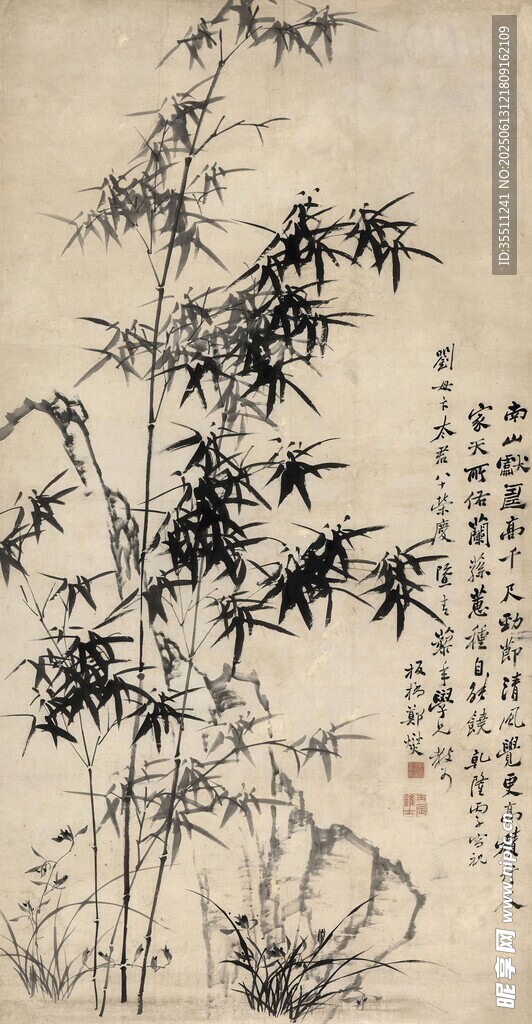 南山獻壽高千尺勁節清風覺更高積善人
家天所佑蘭蓀蕙種自能饒 乾隆丙子寫祝
劉母卞太君八十榮慶 並

藜年學兄 教可
板橋鄭燮
丙辰進士
ID:35511241 NO:20250613121809162109
昵享网 www.nipic.cn